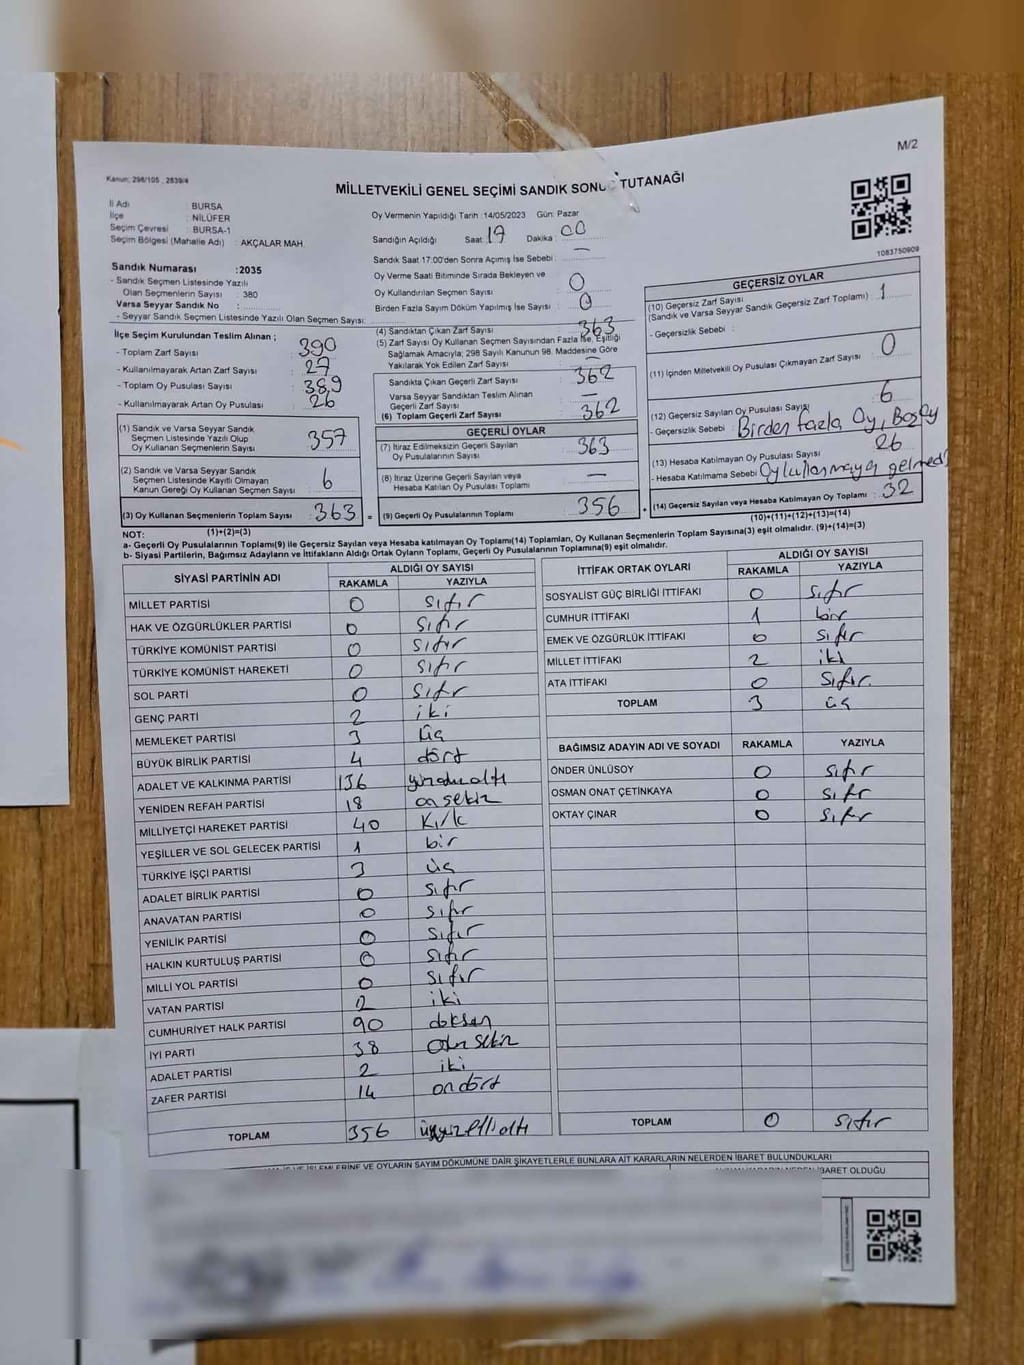 M/2
Kanun: 298/105, 2839/4
MİLLETVEKİLİ GENEL SEÇİMİ SANDIK SONUÇ TUTANAĞI
1083750909
İl Adı : BURSA
İlçe : NİLÜFER
Seçim Çevresi : BURSA-1
Seçim Bölgesi (Mahalle Adı) : AKÇALAR MAH.
Sandık Numarası : 2035
- Sandık Seçmen Listesinde Yazılı
Olan Seçmenlerin Sayısı : 380
Varsa Seyyar Sandık No :
- Seyyar Sandık Seçmen Listesinde Yazılı Olan Seçmen Sayısı:
Oy Vermenin Yapıldığı Tarih :14/05/2023 Gün: Pazar
Sandığın Açıldığı Saat: 17 Dakika : 00
Sandık Saat 17:00'den Sonra Açımış İse Sebebi : —
Oy Verme Saati Bitiminde Sırada Bekleyen ve
Oy Kullandırılan Seçmen Sayısı : 0
Birden Fazla Sayım Döküm Yapılmış İse Sayısı : 0
İlçe Seçim Kurulundan Teslim Alınan ;
- Toplam Zarf Sayısı : 390
- Kullanılmayarak Artan Zarf Sayısı : 27
- Toplam Oy Pusulası Sayısı : 389
- Kullanılmayarak Artan Oy Pusulası : 26
(1) Sandık ve Varsa Seyyar Sandık
Seçmen Listesinde Yazılı Olup
Oy Kullanan Seçmenlerin Sayısı : 357
(2) Sandık ve Varsa Seyyar Sandık
Seçmen Listesinde Kayıtlı Olmayan
Kanun Gereği Oy Kullanan Seçmen Sayısı : 6
(3) Oy Kullanan Seçmenlerin Toplam Sayısı : 363
(4) Sandıktan Çıkan Zarf Sayısı : 363
(5) Zarf Sayısı Oy Kullanan Seçmen Sayısından Fazla İse, Eşitliği
Sağlamak Amacıyla; 298 Sayılı Kanunun 98. Maddesine Göre
Yakılarak Yok Edilen Zarf Sayısı : —
Sandıkta Çıkan Geçerli Zarf Sayısı : 362
Varsa Seyyar Sandıktan Teslim Alınan
Geçerli Zarf Sayısı : —
(6) Toplam Geçerli Zarf Sayısı : 362
GEÇERLİ OYLAR
(7) İtiraz Edilmeksizin Geçerli Sayılan
Oy Pusulalarının Sayısı : 363
(8) İtiraz Üzerine Geçerli Sayılan veya
Hesaba Katılan Oy Pusulası Toplamı : —
= (9) Geçerli Oy Pusulalarının Toplamı : 356 +
GEÇERSİZ OYLAR
(10) Geçersiz Zarf Sayısı
(Sandık ve Varsa Seyyar Sandık Geçersiz Zarf Toplamı) : 1
- Geçersizlik Sebebi :
(11) İçinden Milletvekili Oy Pusulası Çıkmayan Zarf Sayısı : 0
(12) Geçersiz Sayılan Oy Pusulası Sayısı : 6
- Geçersizlik Sebebi : Birden fazla Oy, Boş Oy
(13) Hesaba Katılmayan Oy Pusulası Sayısı : 26
- Hesaba Katılmama Sebebi : Oy kullanmaya gelmedi
(14) Geçersiz Sayılan veya Hesaba Katılmayan Oy Toplamı : 32
NOT: (1)+(2)=(3)
(10)+(11)+(12)+(13)=(14)
a- Geçerli Oy Pusulalarının Toplamı(9) ile Geçersiz Sayılan veya Hesaba Katılmayan Oy Toplamı(14) Toplamları, Oy Kullanan Seçmenlerin Toplam Sayısına(3) eşit olmalıdır. (9)+(14)=(3)
b- Siyasi Partilerin, Bağımsız Adayların ve İttifakların Aldığı Ortak Oyların Toplamı, Geçerli Oy Pusulalarının Toplamına(9) eşit olmalıdır.
SİYASİ PARTİNİN ADI ALDIĞI OY SAYISI
RAKAMLA YAZIYLA
MİLLET PARTİSİ 0 sıfır
HAK VE ÖZGÜRLÜKLER PARTİSİ 0 sıfır
TÜRKİYE KOMÜNİST PARTİSİ 0 sıfır
TÜRKİYE KOMÜNİST HAREKETİ 0 sıfır
SOL PARTİ 0 sıfır
GENÇ PARTİ 2 iki
MEMLEKET PARTİSİ 3 üç
BÜYÜK BİRLİK PARTİSİ 4 dört
ADALET VE KALKINMA PARTİSİ 136
YENİDEN REFAH PARTİSİ 18 onsekiz
MİLLİYETÇİ HAREKET PARTİSİ 40 Kırk
YEŞİLLER VE SOL GELECEK PARTİSİ 1 bir
TÜRKİYE İŞÇİ PARTİSİ 3 üç
ADALET BİRLİK PARTİSİ 0 sıfır
ANAVATAN PARTİSİ 0 sıfır
YENİLİK PARTİSİ 0 sıfır
HALKIN KURTULUŞ PARTİSİ 0 sıfır
MİLLİ YOL PARTİSİ 0 sıfır
VATAN PARTİSİ 2 iki
CUMHURİYET HALK PARTİSİ 90 doksan
İYİ PARTİ 38 otuz sekiz
ADALET PARTİSİ 2 iki
ZAFER PARTİSİ 14 ondört
TOPLAM 356 üçyüzelli altı
İTTİFAK ORTAK OYLARI ALDIĞI OY SAYISI
RAKAMLA YAZIYLA
SOSYALİST GÜÇ BİRLİĞİ İTTİFAKI 0 sıfır
CUMHUR İTTİFAKI 1 bir
EMEK VE ÖZGÜRLÜK İTTİFAKI 0 sıfır
MİLLET İTTİFAKI 2 iki
ATA İTTİFAKI 0 sıfır
TOPLAM 3 üç
BAĞIMSIZ ADAYIN ADI VE SOYADI RAKAMLA YAZIYLA
ÖNDER ÜNLÜSOY 0 sıfır
OSMAN ONAT ÇETİNKAYA 0 sıfır
OKTAY ÇINAR 0 sıfır
TOPLAM 0 sıfır
VE OYLARIN SAYIM DÖKÜMÜNE DAİR ŞİKAYETLERLE BUNLARA AİT KARARLARIN NELERDEN İBARET BULUNDUKLARI
İBARET OLDUĞU